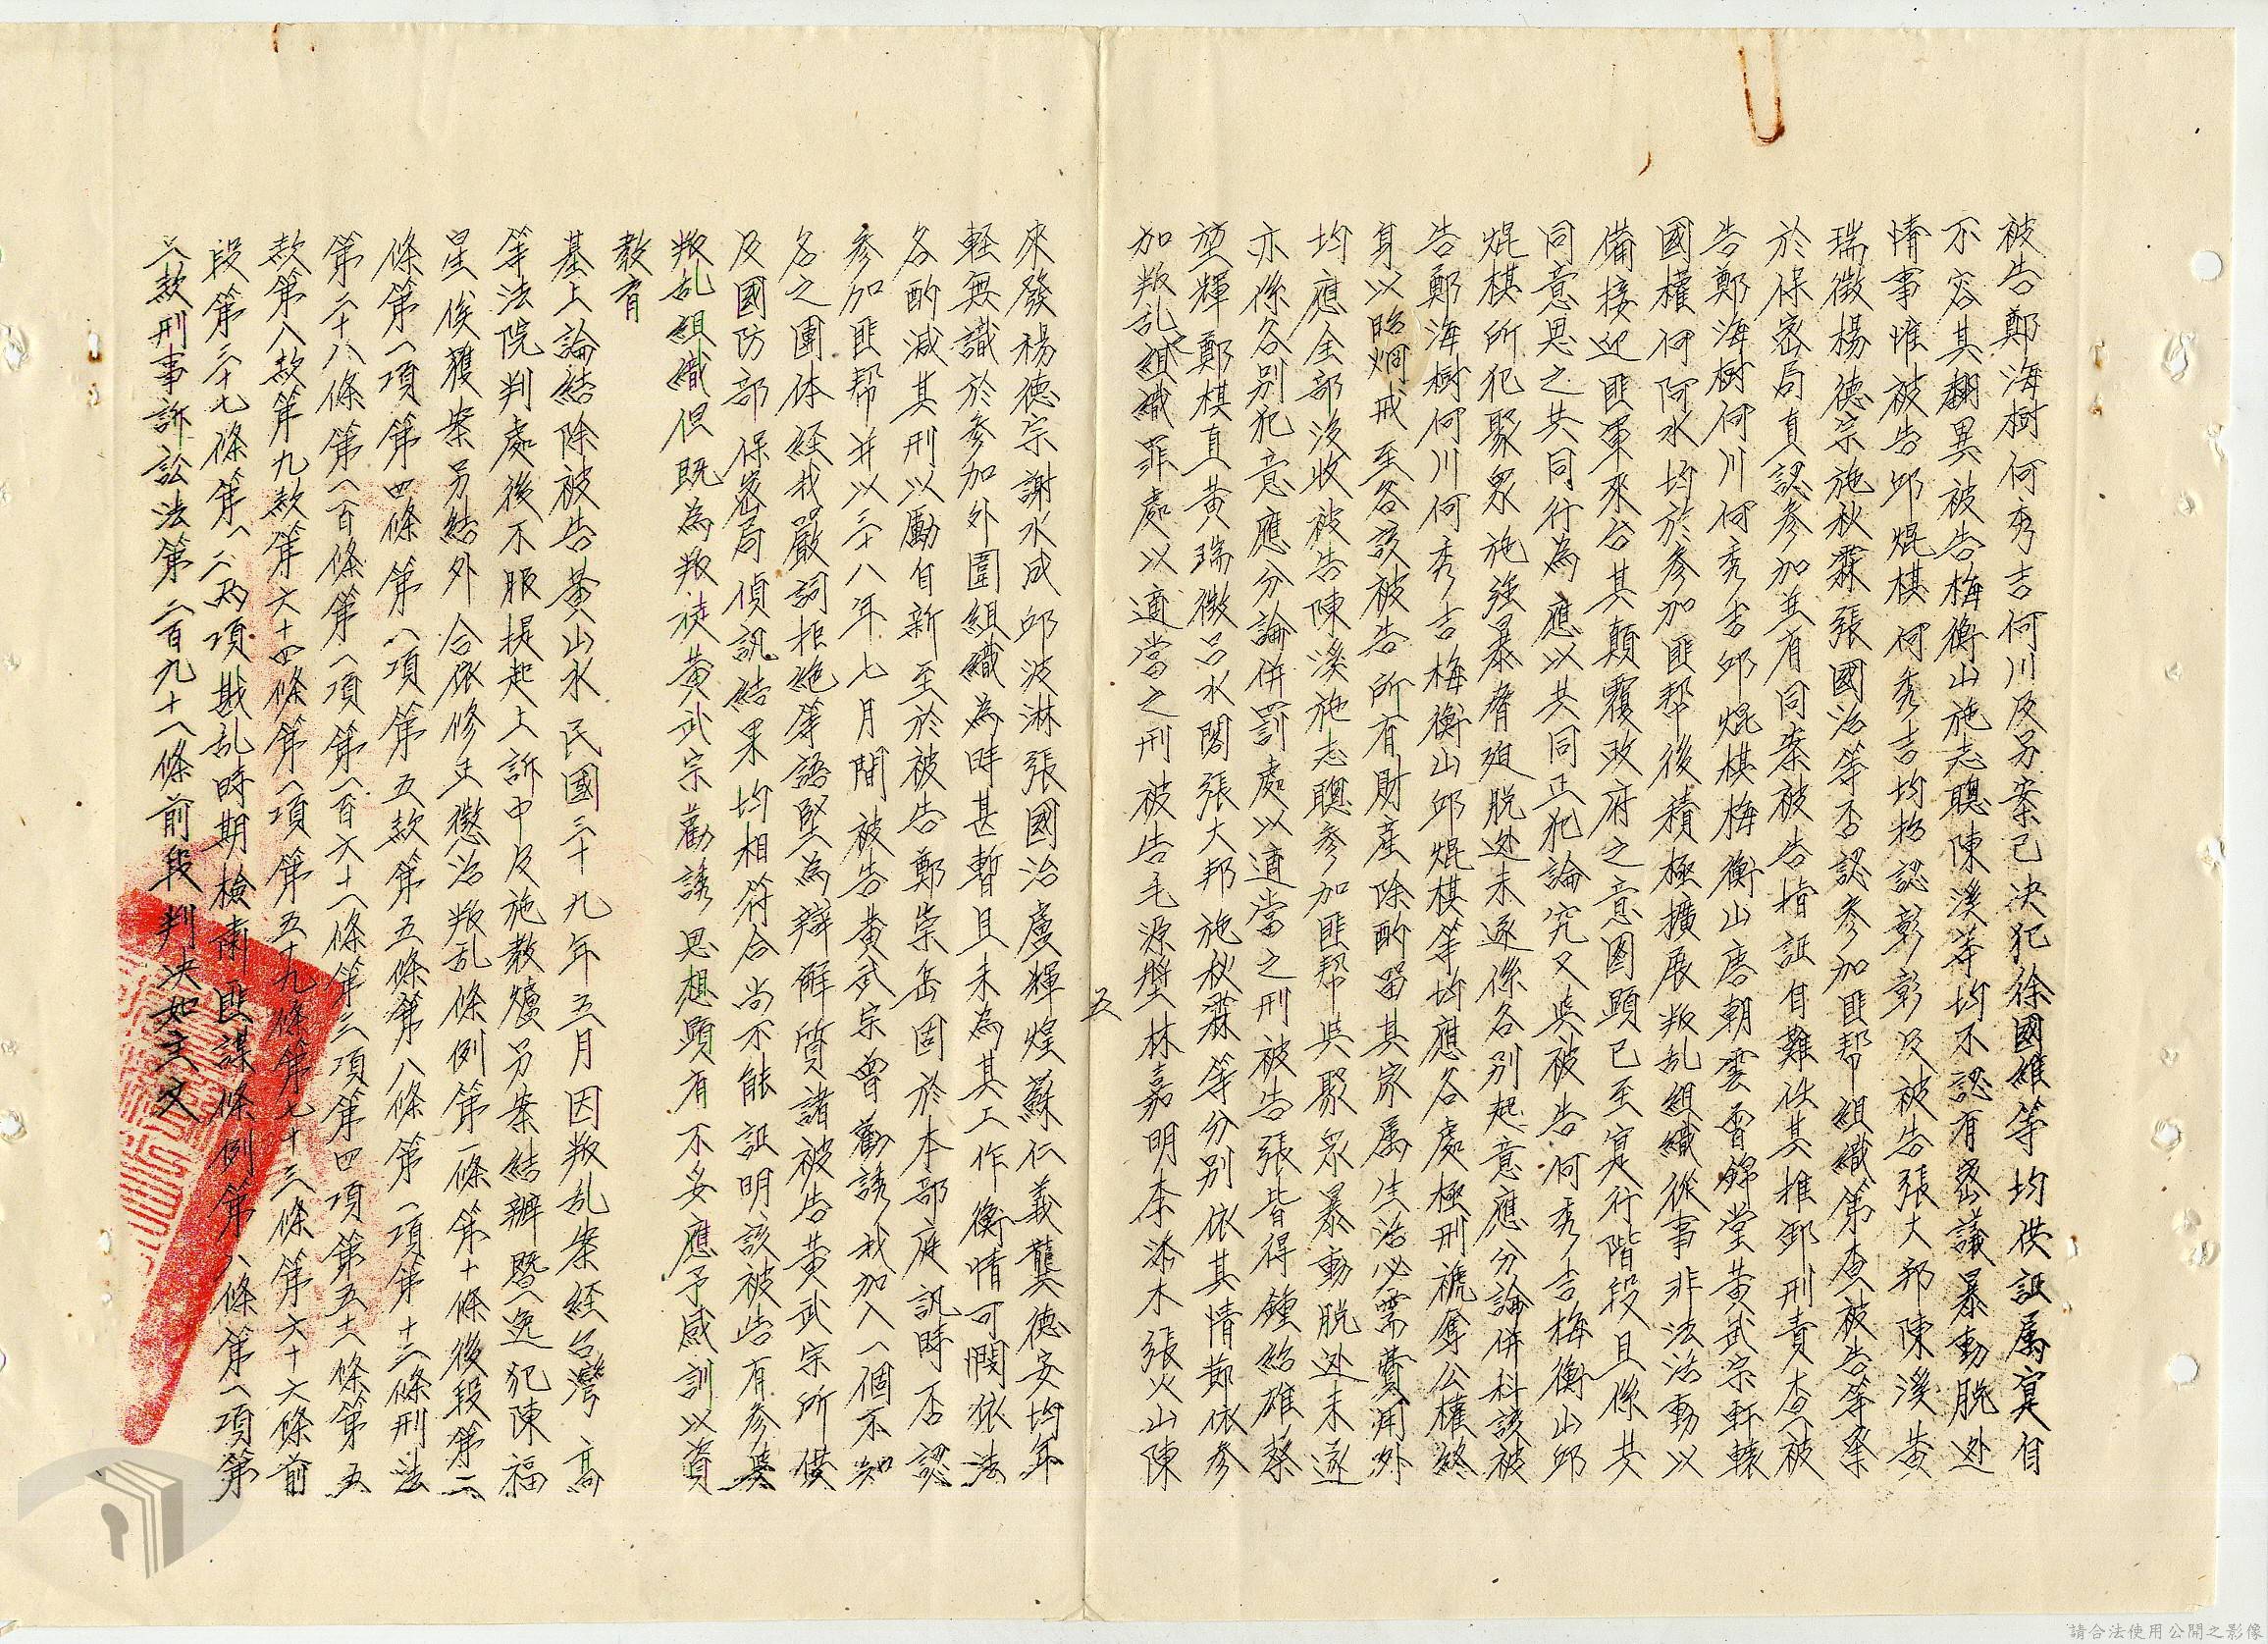 被告鄭海樹何秀吉何川及另案已決犯徐國維等均供証属寔自
不容其翻異被告梅衡山施志聰陳溪等均不認有密議暴動脱逃
情事惟被告邱焜棋何秀吉均抅認彰彰及被告張大邦陳溪黄
瑞徵楊德宗施秋霖張國治等否認參加匪帮組織第查被告等案
於保密局直認參加並有同案被告指証自難任其推卸刑責查被
告鄭海樹何川何秀吉邱焜棋梅衡山唐朝雲曾錦堂黄武宗軒轅
國權何阿水均於參加匪帮後積極擴展叛乱組織從事非法活動以
備接迎匪軍來台其顛覆政府之意圖顕已至寔行階段且係共
同意思之共同行為應以共同正犯論究又吳被告何秀吉梅衡山邱
焜棋所犯聚眾施强暴脅迫脱逃未遂係各别起意應分論併科該被
告鄭海樹何川何秀吉梅衡山邱焜棋等均應各處極刑褫奪公權終
身以昭烱戒至各該被告所有財產除酌留其家属生活必需費用外
均應全部沒收被告陳溪施志聰參加匪帮與聚眾暴動脱逃未遂
亦係各别犯意應分論併罰處以適當之刑被告張皆得鍾紹雄蔡
𡋾輝鄭棋直黄瑞徵呂水閣張大邦施秋霖等分别依其情節依參
加叛乱組織罪處以適當之刑被告毛源㙷林嘉明李添木張火山陳
五
來發楊德宗謝水成邱波淋張國治盧輝煌蘇仁義龔德安均年
軽無識於參加外圍組織為時甚暫且未為其工作衡情可憫依法
各酌減其刑以勵自新至於被告鄭崇岳固於本部庭訊時否認
參加匪帮并以三十八年七月間被告黄武宗曾勸誘我加入一個不知
名之團体経我嚴詞拒絶等語堅為辯解質諸被告黄武宗所供
及國防部保密局偵訊結果均相符合尚不能証明該被告有參與
叛乱組織但既為叛徒黄武宗勸誘思想顕有不妥應予感訓以資
教育
基上論結除被告黄山水民國三十九年五月因叛乱案経台灣高
等法院判處後不服提起上訴中及施教爐另案結辦暨逸犯陳福
星俟獲案另結外合依修正懲治叛乱條例第一條第十條後段第二
條第一項第四條第一項第五款第五條第八條第一項第十二條刑法
第二十八條第一百條第一項第一百六十一條第三項第四項第五十一條第五
款第八款第九款第六十四條第一項第五十九條第七十三條第六十六條前
段第三十七條第一二两項戡乱時期檢肅匪諜條例第八條第一項第
二款刑事訴訟法第二百九十一條前段判决如主文
請合法使用公開之影像